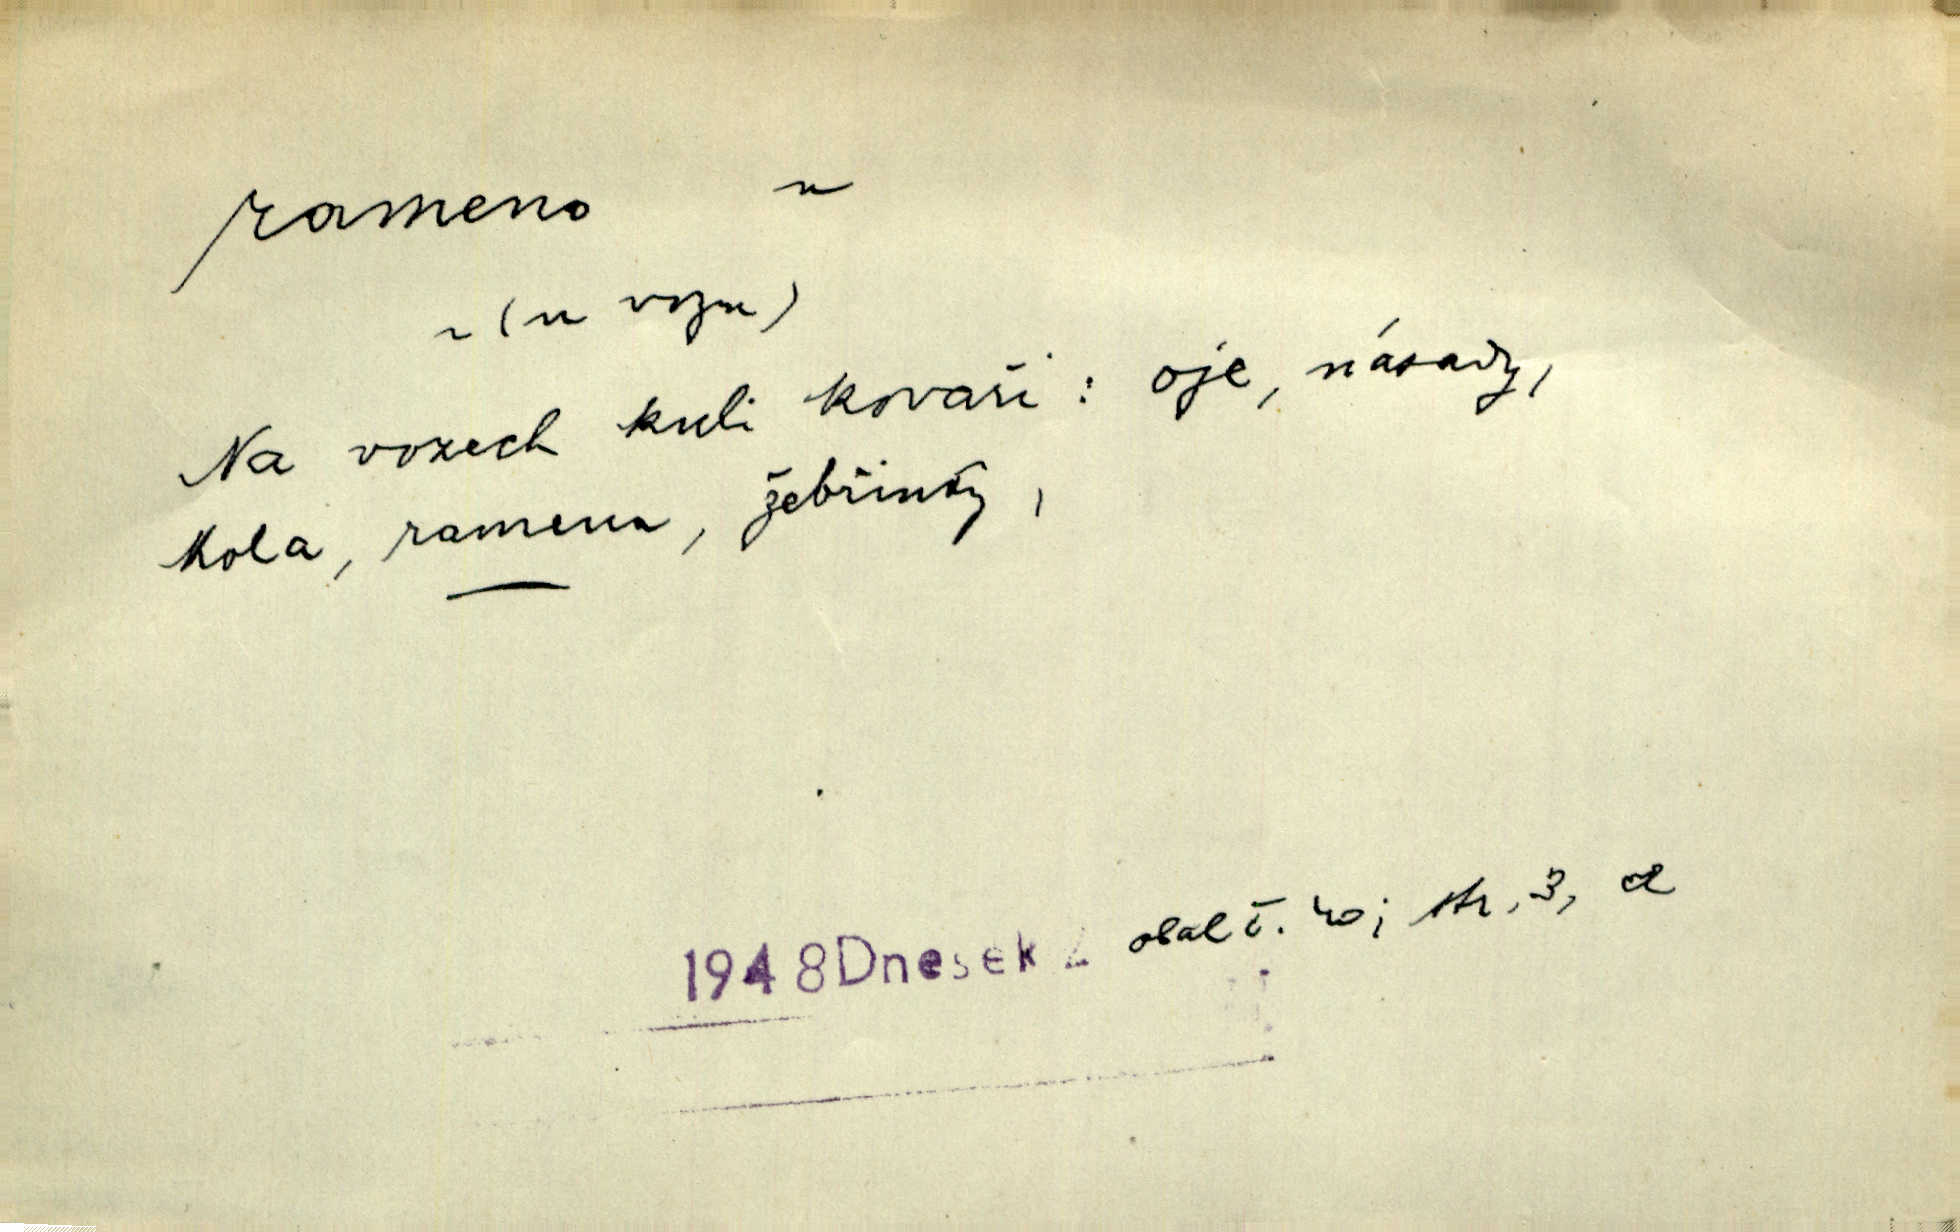 rameno ~
~ (u vozu)
Na vozech kuli kováři: oje, násady,
kola, ramena, žebřinky,
1948 Dnesek 2 obal č. 40; str. 3, a